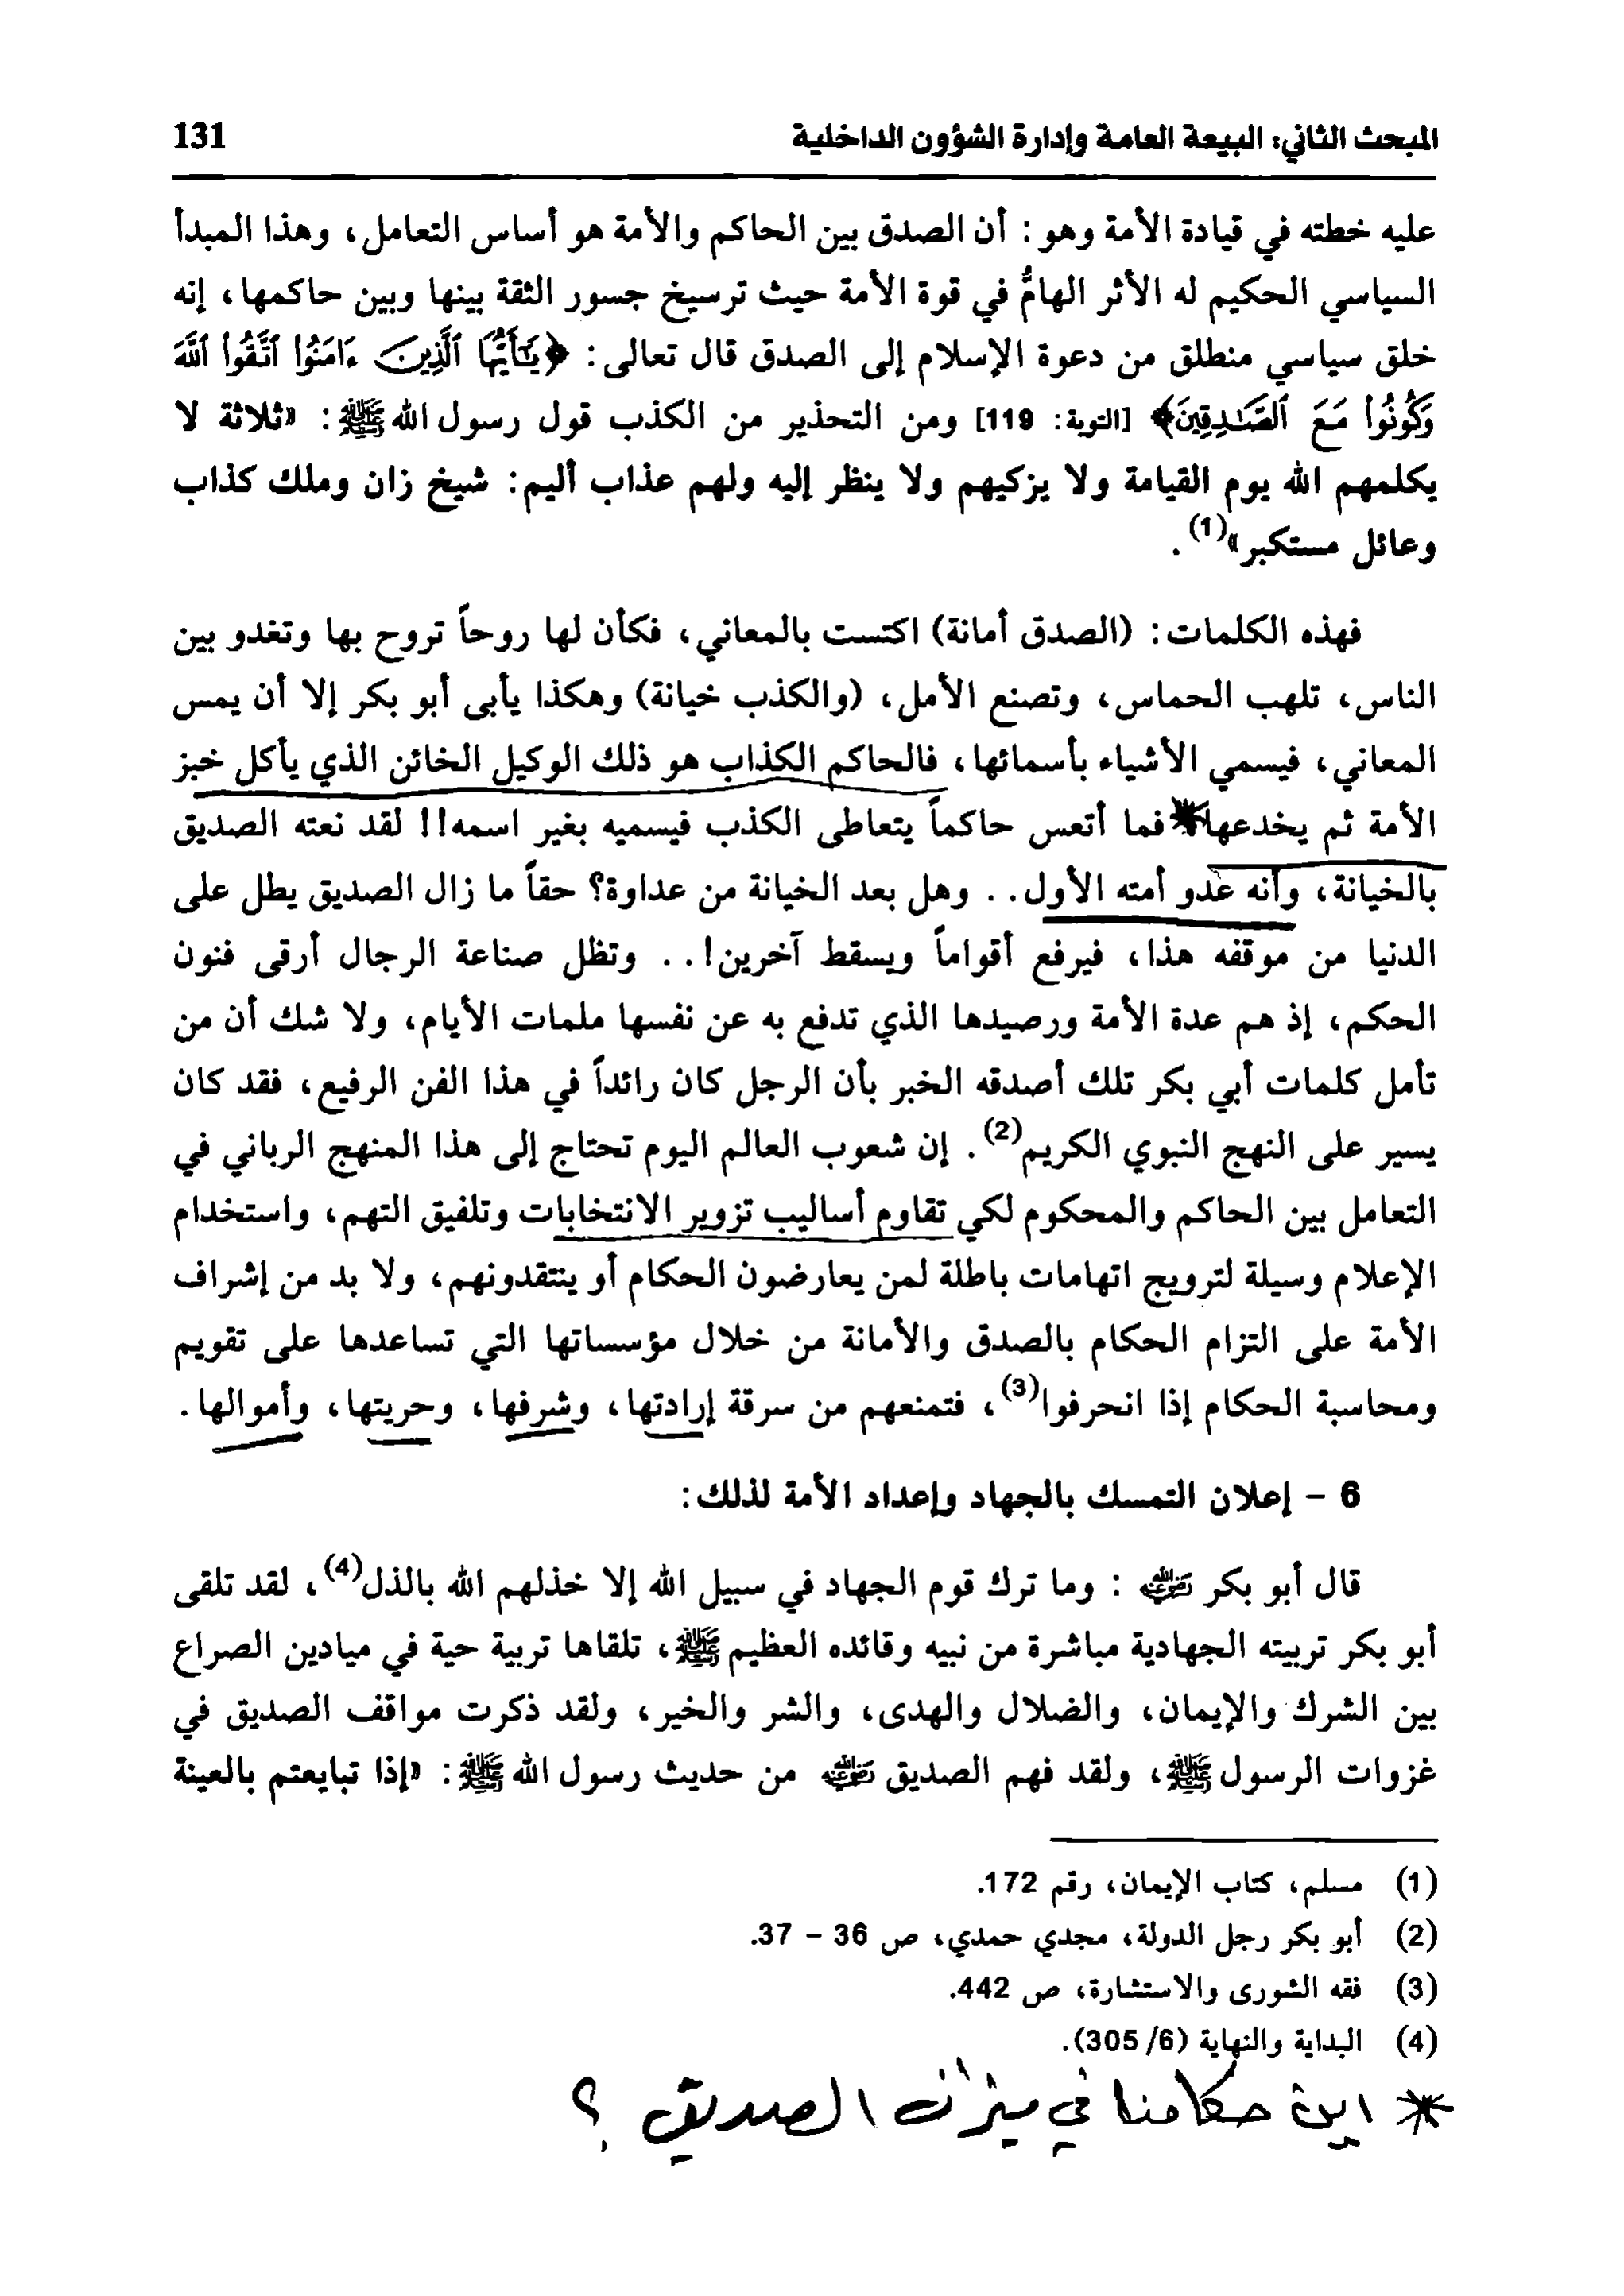 المبحث الثاني: البيعة العامة وإدارة الشؤون الداخلية 131
عليه خطته في قيادة الأمة وهو: أن الصدق بين الحاكم والأمة هو أساس التعامل، وهذا المبدأ
السياسي الحكيم له الأثر الهامُّ في قوة الأمة حيث ترسيخ جسور الثقة بينها وبين حاكمها، إنه
خلق سياسي منطلق من دعوة الإسلام إلى الصدق قال تعالى: ﴿يَٰٓأَيُّهَا ٱلَّذِينَ ءَامَنُوا۟ ٱتَّقُوا۟ ٱللَّهَ
وَكُونُوا۟ مَعَ ٱلصَّٰدِقِينَ﴾ [التوبة: 119] ومن التحذير من الكذب قول رسول الله ﷺ: «ثلاثة لا
يكلمهم الله يوم القيامة ولا يزكيهم ولا ينظر إليه ولهم عذاب أليم: شيخ زان وملك كذاب
وعائل مستكبر»(1).
فهذه الكلمات: (الصدق أمانة) اكتست بالمعاني، فكأن لها روحاً تروح بها وتغدو بين
الناس، تلهب الحماس، وتصنع الأمل، (والكذب خيانة) وهكذا يأبى أبو بكر إلا أن يمس
المعاني، فيسمي الأشياء بأسمائها، فالحاكم الكذاب هو ذلك الوكيل الخائن الذي يأكل خبز
الأمة ثم يخدعها* فما أتعس حاكماً يتعاطى الكذب فيسميه بغير اسمه!! لقد نعته الصديق
بالخيانة، وأنه عدو أمته الأول.. وهل بعد الخيانة من عداوة؟ حقاً ما زال الصديق يطل على
الدنيا من موقفه هذا، فيرفع أقواماً ويسقط آخرين!.. وتظل صناعة الرجال أرقى فنون
الحكم، إذ هم عدة الأمة ورصيدها الذي تدفع به عن نفسها ملمات الأيام، ولا شك أن من
تأمل كلمات أبي بكر تلك أصدقه الخبر بأن الرجل كان رائداً في هذا الفن الرفيع، فقد كان
يسير على النهج النبوي الكريم(2). إن شعوب العالم اليوم تحتاج إلى هذا المنهج الرباني في
التعامل بين الحاكم والمحكوم لكي تقاوم أساليب تزوير الانتخابات وتلفيق التهم، واستخدام
الإعلام وسيلة لترويج اتهامات باطلة لمن يعارضون الحكام أو ينتقدونهم، ولا بد من إشراف
الأمة على التزام الحكام بالصدق والأمانة من خلال مؤسساتها التي تساعدها على تقويم
ومحاسبة الحكام إذا انحرفوا(3)، فتمنعهم من سرقة إرادتها، وشرفها، وحريتها، وأموالها.
6 - إعلان التمسك بالجهاد وإعداد الأمة لذلك:
قال أبو بكر رضي الله عنه: وما ترك قوم الجهاد في سبيل الله إلا خذلهم الله بالذل(4)، لقد تلقى
أبو بكر تربيته الجهادية مباشرة من نبيه وقائده العظيم ﷺ، تلقاها تربية حية في ميادين الصراع
بين الشرك والإيمان، والضلال والهدى، والشر والخير، ولقد ذكرت مواقف الصديق في
غزوات الرسول ﷺ، ولقد فهم الصديق رضي الله عنه من حديث رسول الله ﷺ: «إذا تبايعتم بالعينة
(1) مسلم، كتاب الإيمان، رقم 172.
(2) أبو بكر رجل الدولة، مجدي حمدي، ص 36 - 37.
(3) فقه الشورى والاستشارة، ص 442.
(4) البداية والنهاية (6/ 305).
* اين حكامنا في ميزان الصديق ؟